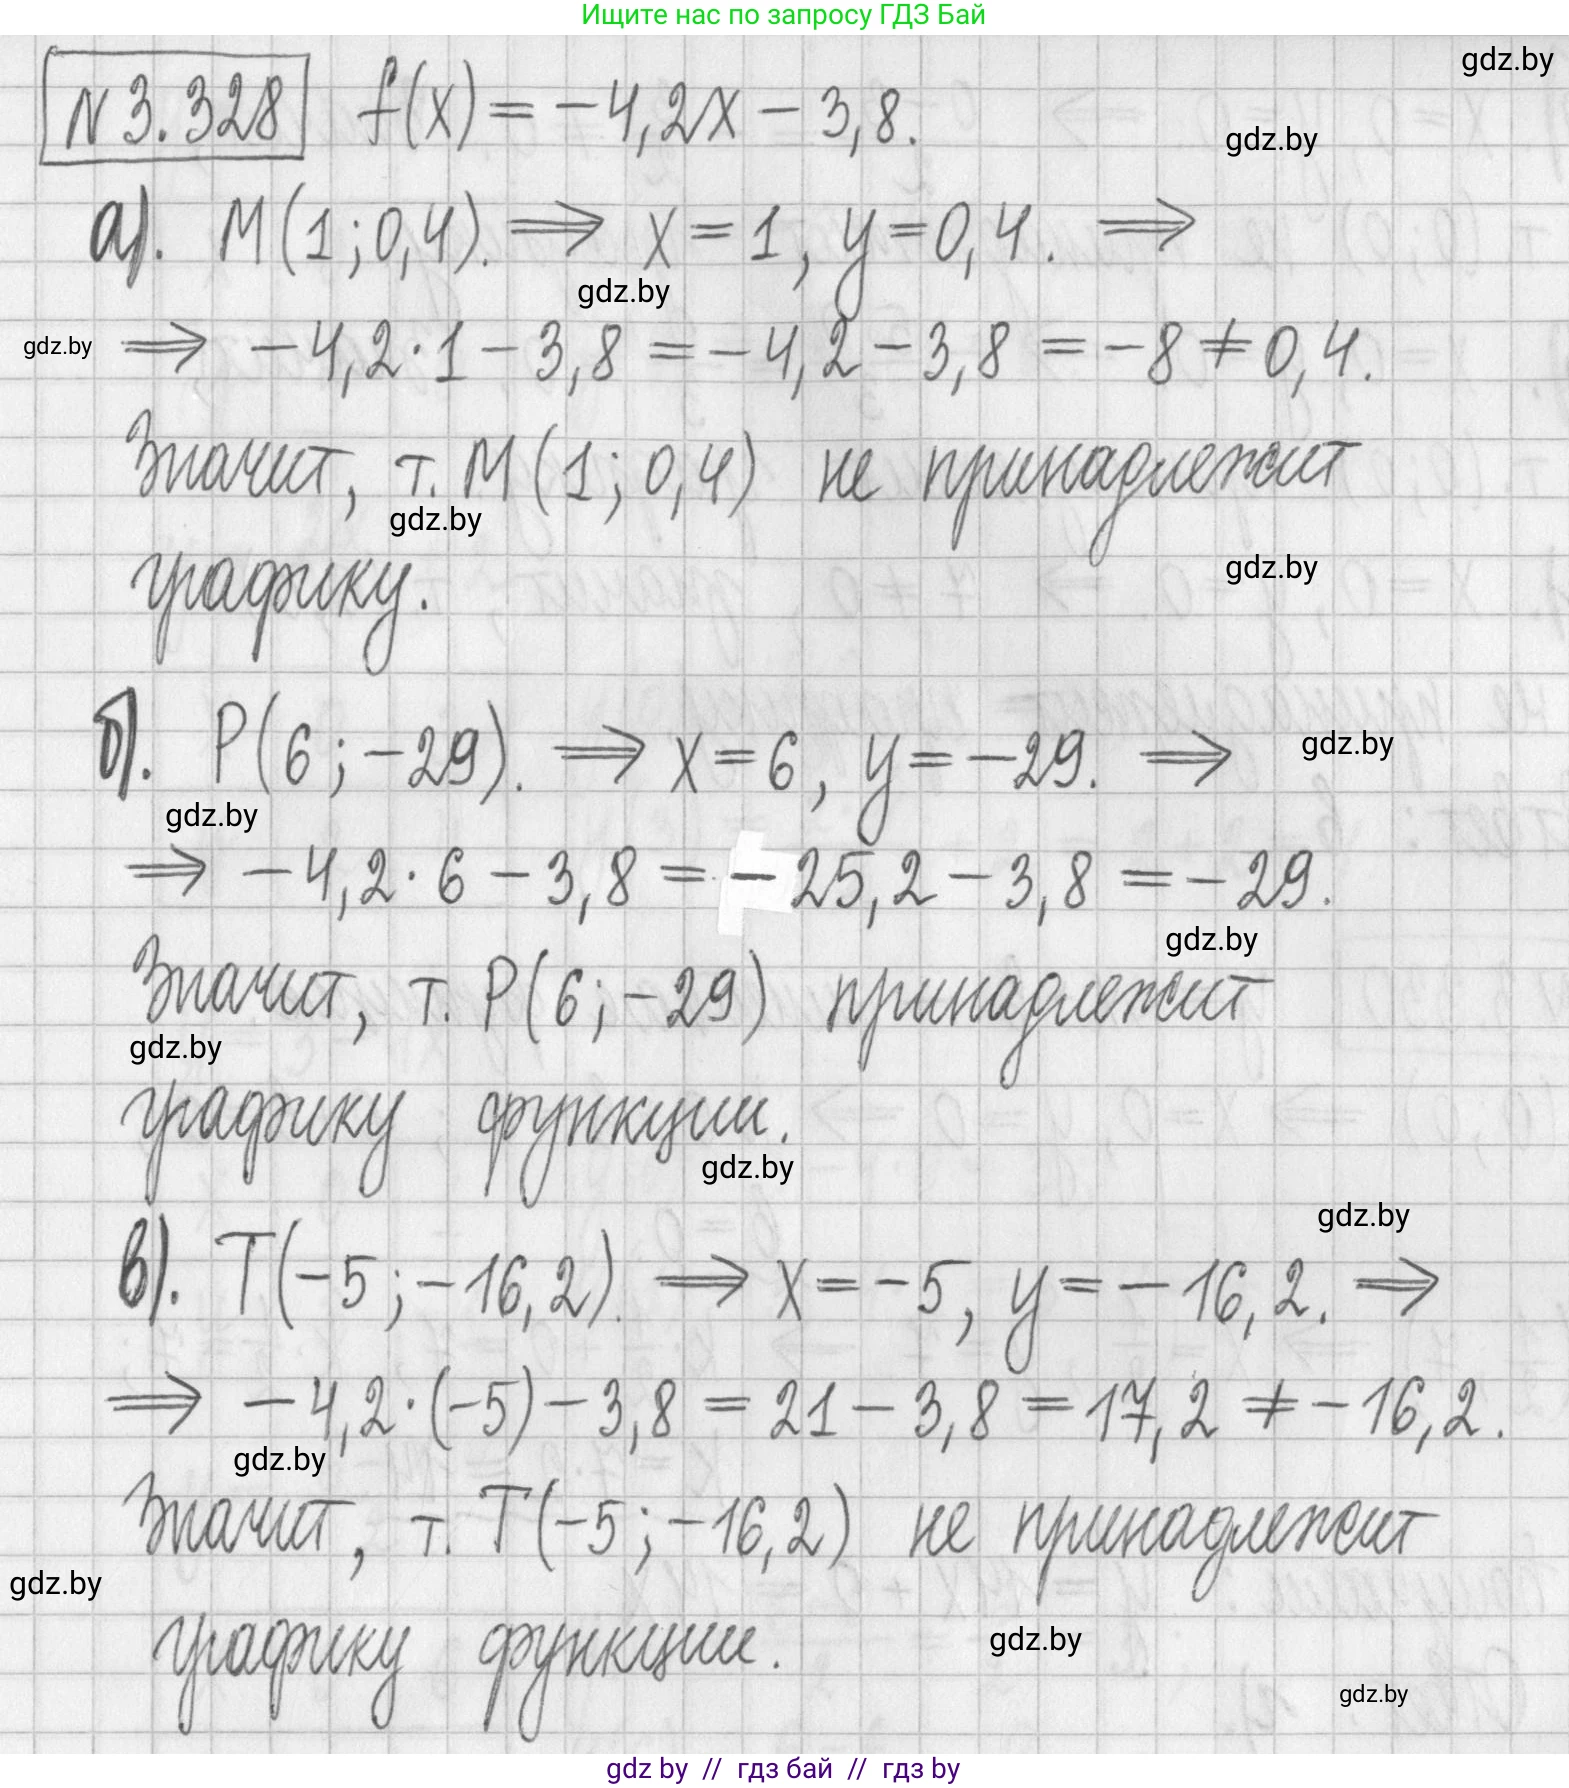 Ищите нас по запросу ГДЗ Бай
gdz.by
№ 3.328 f(x) = -4,2x - 3,8.
gdz.by
а). M(1; 0,4). ⟹ x = 1, y = 0,4. ⟹
gdz.by
gdz.by ⟹ -4,2·1 - 3,8 = -4,2 - 3,8 = -8 ≠ 0,4.
Значит, т. M(1; 0,4) не принадлежит
gdz.by
gdz.by
графику.
б). P(6; -29). ⟹ x = 6, y = -29. ⟹ gdz.by
gdz.by
⟹ -4,2·6 - 3,8 = -25,2 - 3,8 = -29.
gdz.by
Значит, т. P(6; -29) принадлежит
gdz.by
графику функции.
gdz.by
gdz.by
в). T(-5; -16,2). ⟹ x = -5, y = -16,2. ⟹
⟹ -4,2·(-5) - 3,8 = 21 - 3,8 = 17,2 ≠ -16,2.
gdz.by
Значит, т. T(-5; -16,2) не принадлежит
gdz.by
графику функции.
gdz.by
gdz.by
gdz by // гдз бай // гдз by